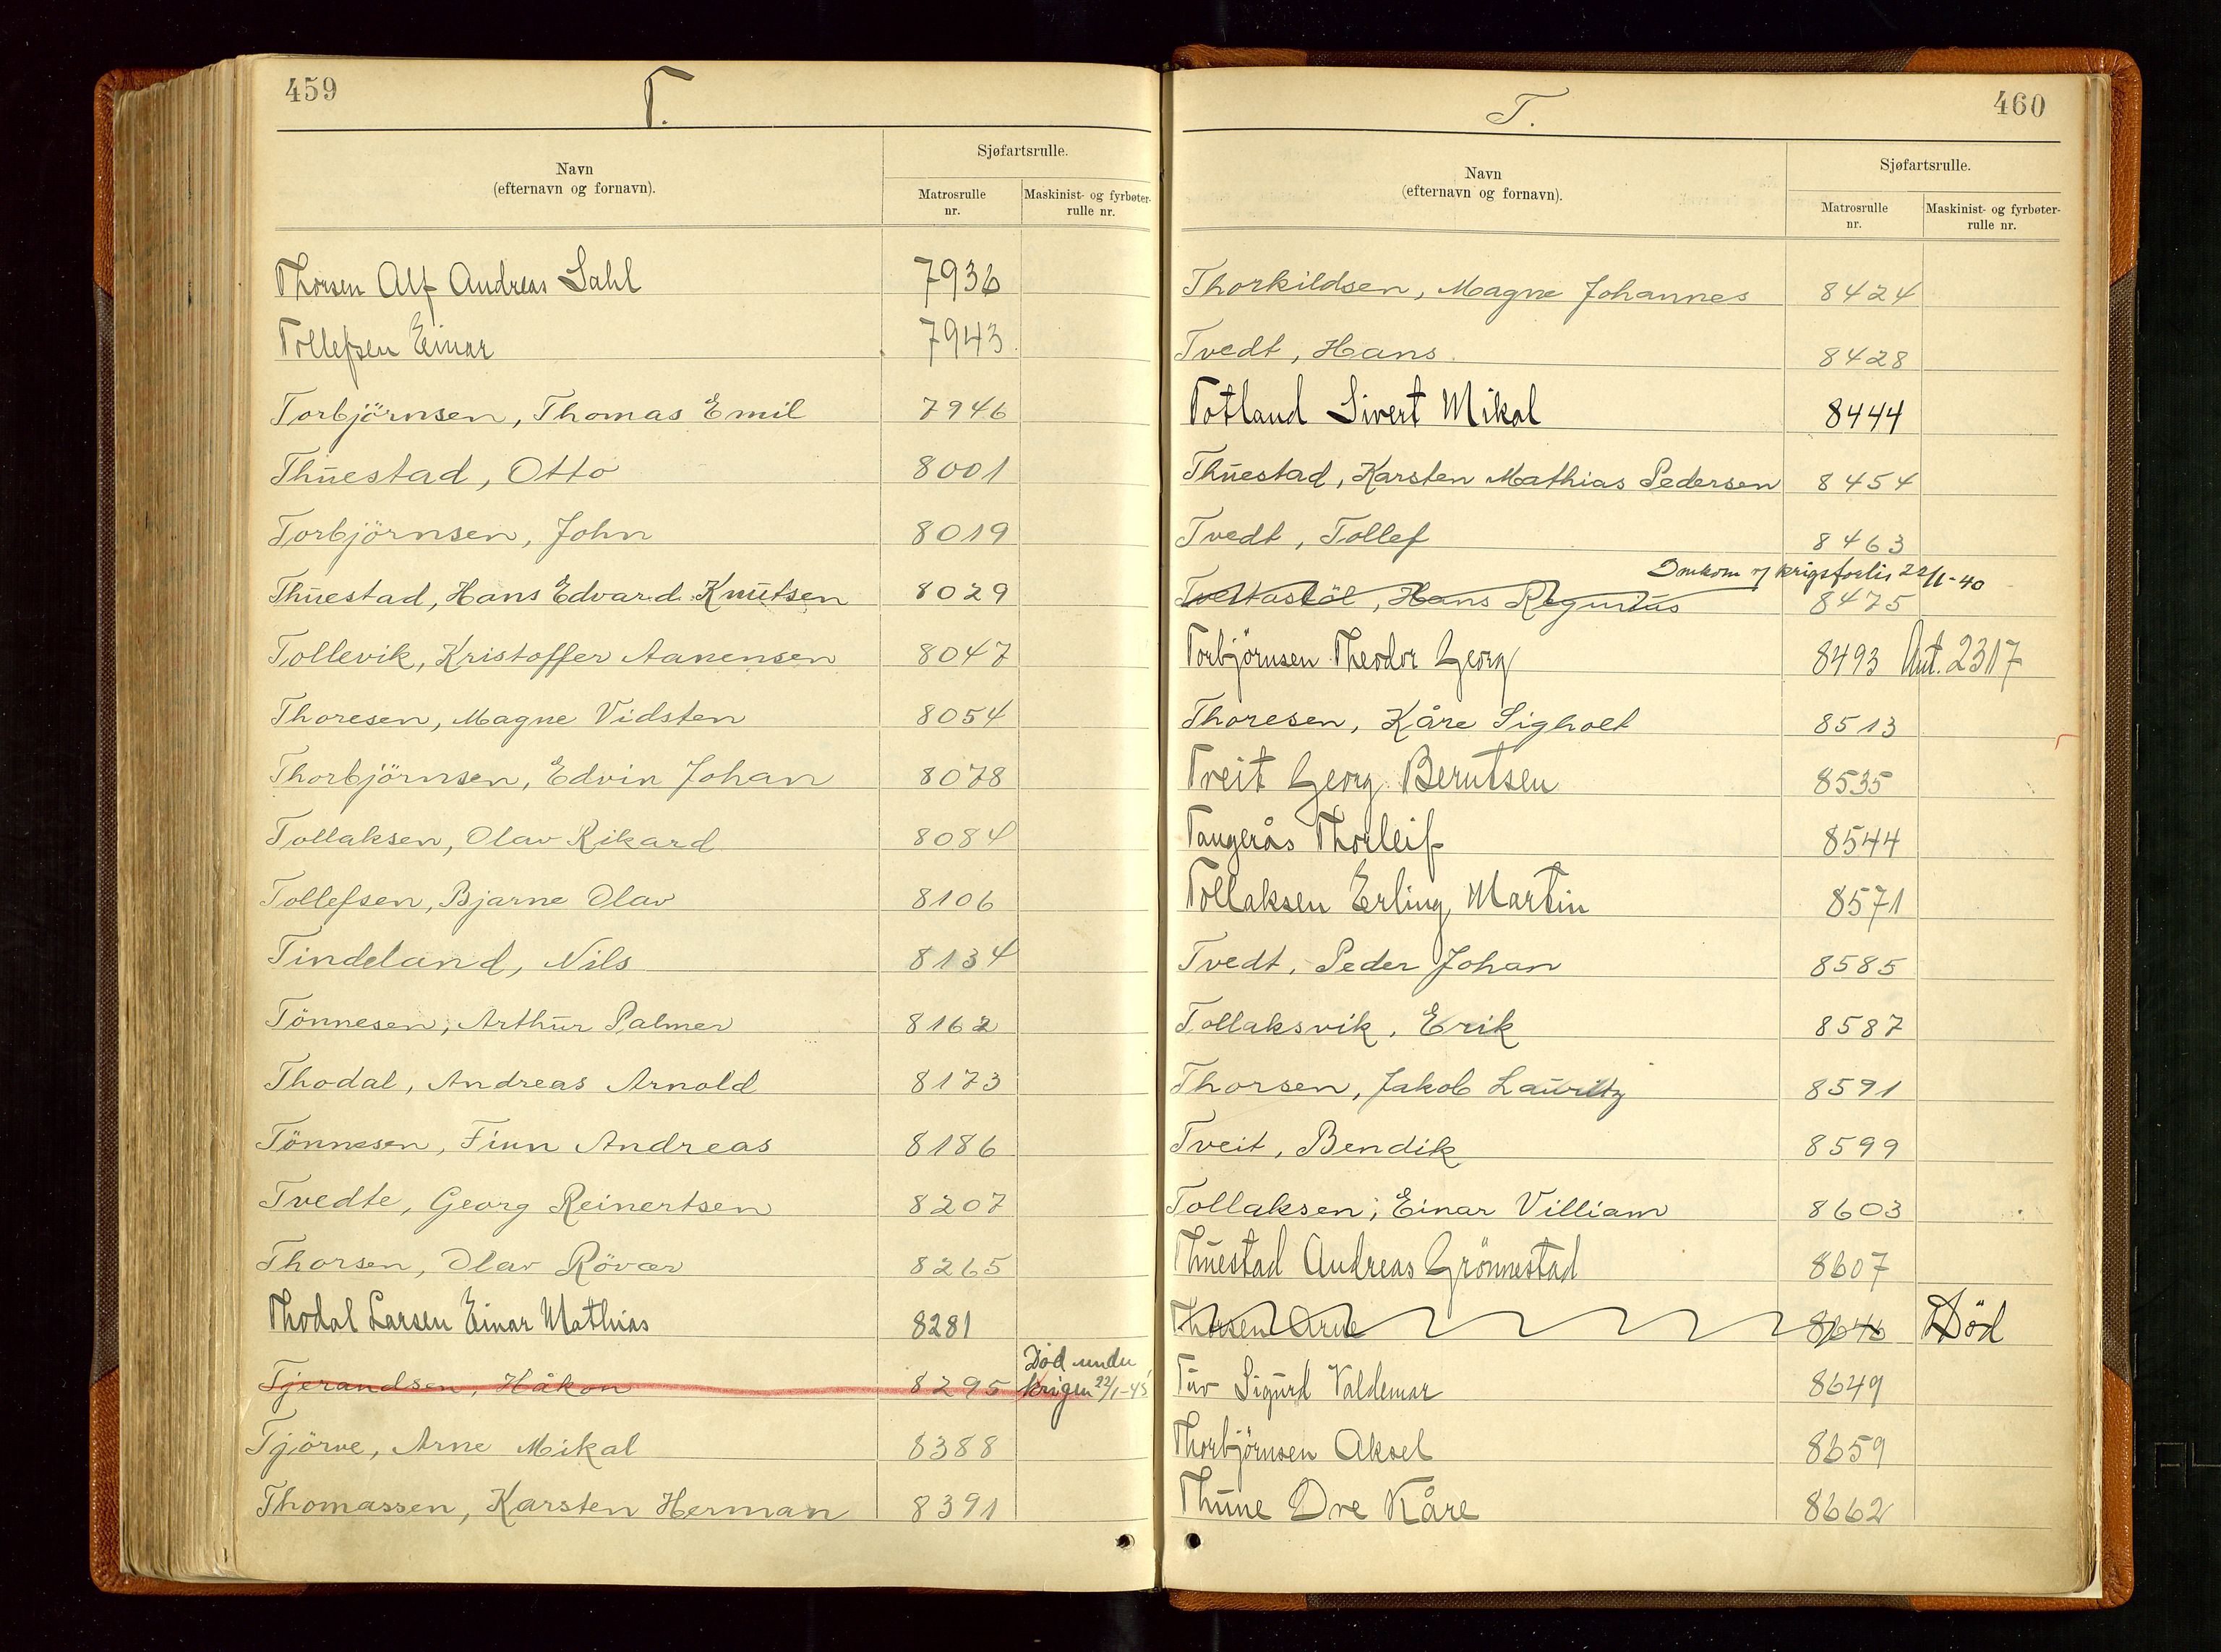 459
T.
Navn
(efternavn og fornavn).
Sjøfartsrulle.
Matrosrulle
nr.
Maskinist- og fyrbøter-
rulle nr.
Thorsen Alf Andreas Dahl 7936
Tollefsen Einar 7943
Torbjörnsen, Thomas Emil 7946
Thuestad, Otto 8001
Torbjörnsen, John 8019
Thuestad, Hans Edvard Knutsen 8029
Tollevik, Kristoffer Aanensen 8047
Thoresen, Magne Vidsten 8054
Thorbjörnsen, Edvin Johan 8078
Tollaksen, Olav Rikard 8084
Tollefsen, Bjarne Olav 8106
Tindeland, Nils 8134
Tönnesen, Arthur Palmer 8162
Thodal, Andreas Arnold 8173
Tönnesen, Finn Andreas 8186
Tvedte, Georg Reinertsen 8207
Thorsen, Olav Rövær 8265
Thodal Larsen Einar Mathias 8281
Død under
Tjerandsen, Håkon 8295 krigen 22/1-45
Tjörve, Arne Mikal 8388
Thomassen, Karsten Herman 8391
460
T.
Navn
(efternavn og fornavn).
Sjøfartsrulle.
Matrosrulle
nr.
Maskinist- og fyrbøter-
rulle nr.
Thorkildsen, Magne Johannes 8424
Tvedt, Hans 8428
Totland Sivert Mikal 8444
Thuestad, Karsten Mathias Pedersen 8454
Tvedt, Tollef 8463
Omkom v/ krigsforlis 22/11-40
Hans 8475
Torbjörnsen Theodor Georg 8493 Ant. 2317
Thoresen, Kåre Sigholt 8513
Tveit Georg Berntsen 8535
Tangerås Thorleif 8544
Tollaksen Erling Martin 8571
Tvedt, Peder Johan 8585
Tollaksvik, Erik 8587
Thorsen, Jakob Lauritz 8591
Tveit, Bendik 8599
Tollaksen, Einar Villiam 8603
Thuestad Andreas Grönnestad 8607
Thorsen Arne 8646 Död
Tuv Sigurd Valdemar 8649
Thorbjörnsen Aksel 8659
Thune Ove Kåre 8662